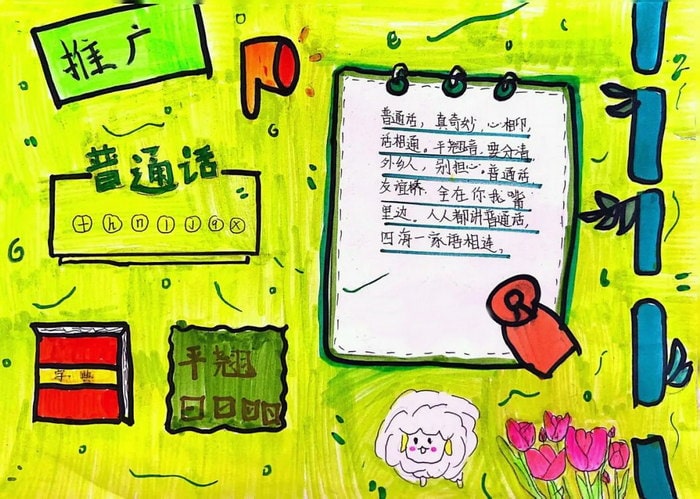 推广
普通话
t h n l j q x
字典
平翘
普通话，真奇妙，心相印，
话相通。平翘音，要分清，
外乡人，别担心。普通话
友谊桥，全在你我嘴
里边。人人都讲普通话，
四海一家语相连。